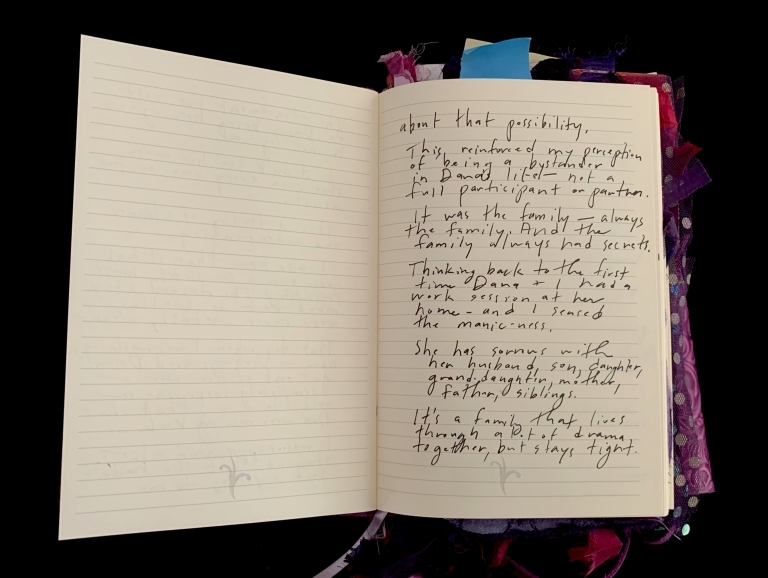 about that possibility.
This, reinforced my perception
of being a bystander
in Dana's life — not a
full participant or partner.
It was the family — always
the family. And the
family always had secrets.
Thinking back to the first
time Dana + I had a
work session at her
home - and I sensed
the manic-ness.
She has sorrows with
her husband, son, daughter,
grand-daughter, mother,
father, siblings.
It's a family that lives
through a lot of drama
together, but stays tight.